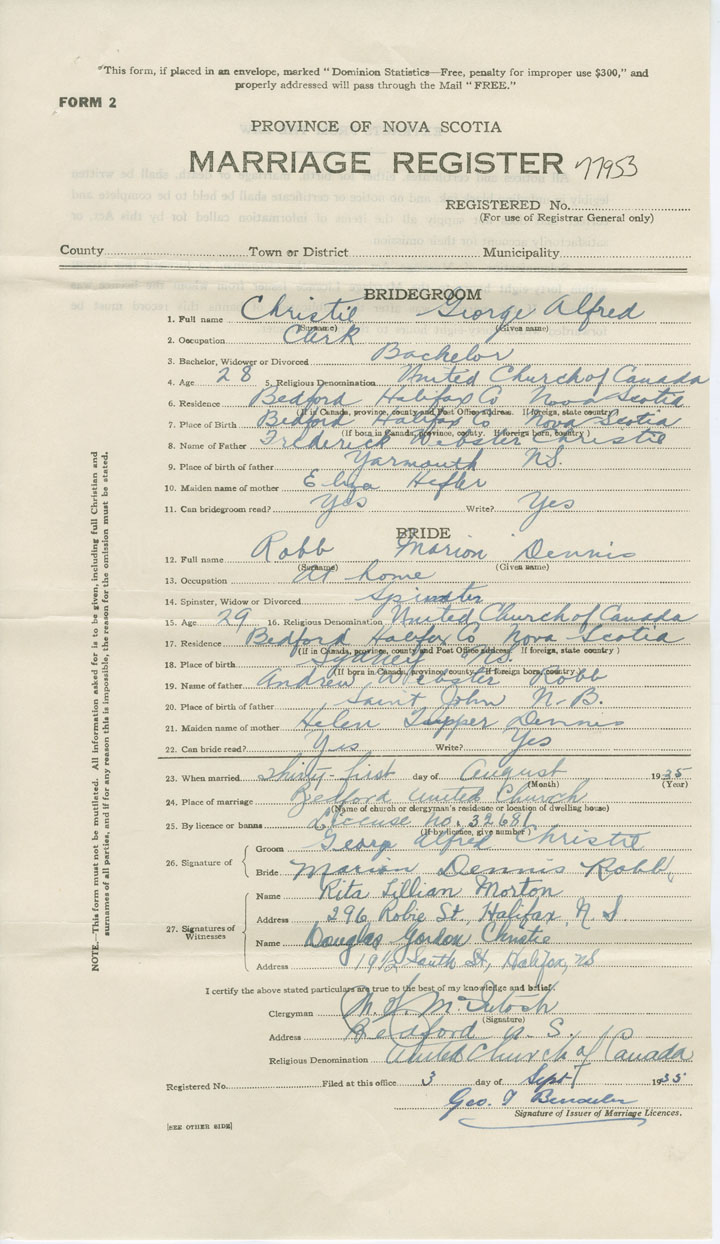 "This form, if placed in an envelope, marked "Dominion Statistics—Free, penalty for improper use $300," and
properly addressed will pass through the Mail "FREE."
FORM 2
PROVINCE OF NOVA SCOTIA
MARRIAGE REGISTER 77953
REGISTERED No.
(For use of Registrar General only)
County Town or District Municipality
BRIDEGROOM
1. Full name Christie George Alfred
(Surname) (Given name)
2. Occupation Clerk
3. Bachelor, Widower or Divorced Bachelor
4. Age 28 5. Religious Denomination United Church of Canada
6. Residence Bedford Halifax Co Nova Scotia
(If in Canada, province, county and Post Office address. If foreign, state country)
7. Place of Birth Bedford Halifax Co Nova Scotia
(If born in Canada, province, county. If foreign born, country)
8. Name of Father Frederick Webster Christie
9. Place of birth of father Yarmouth NS.
10. Maiden name of mother Eliza Hefler
11. Can bridegroom read? Yes Write? Yes
BRIDE
12. Full name Robb Marion Dennis
(Surname) (Given name)
13. Occupation At home
14. Spinster, Widow or Divorced Spinster
15. Age 29 16. Religious Denomination United Church of Canada
17. Residence Bedford Halifax Co Nova Scotia
(If in Canada, province, county and Post Office address. If foreign, state country)
18. Place of birth Sydney NS.
(If born in Canada, province, county. If foreign born, country)
19. Name of father Andrew Webster Robb
20. Place of birth of father Saint John N-B.
21. Maiden name of mother Helen Tupper Dennis
22. Can bride read? Yes Write? Yes
23. When married Thirty-first day of August 1935
(Month) (Year)
24. Place of marriage Bedford United Church
(Name of church or clergyman's residence or location of dwelling house)
25. By licence or banns License No. 32681
(If by licence, give number)
26. Signature of
Groom George Alfred Christie
Bride Marion Dennis Robb
27. Signatures of Witnesses
Name Rita Lillian Morton
Address 296 Robie St., Halifax, N.S
Name Douglas Gordon Christie
Address 19½ South St, Halifax, NS
I certify the above stated particulars are true to the best of my knowledge and belief.
Clergyman McIntosh
(Signature)
Address Bedford N.S.
Religious Denomination United Church of Canada
Registered No. Filed at this office 3 day of Sept 1935
Geo. T
Signature of Issuer of Marriage Licences.
[SEE OTHER SIDE]
NOTE.—This form must not be mutilated. All information asked for is to be given, including full Christian and
surnames of all parties, and if for any reason this is impossible, the reason for the omission must be stated.